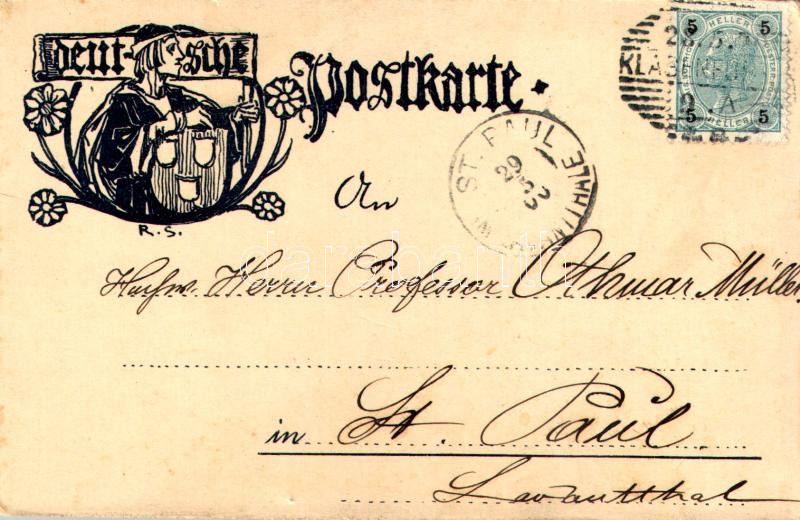 deutsche
Postkarte.
R.S.
5 HELLER 5
5 HELLER 5
KLAG
ST. PAUL
29 5 00
An
Hochw. Herrn Professor Othmar Müller
in St. Paul
Lavantthal
darabanth